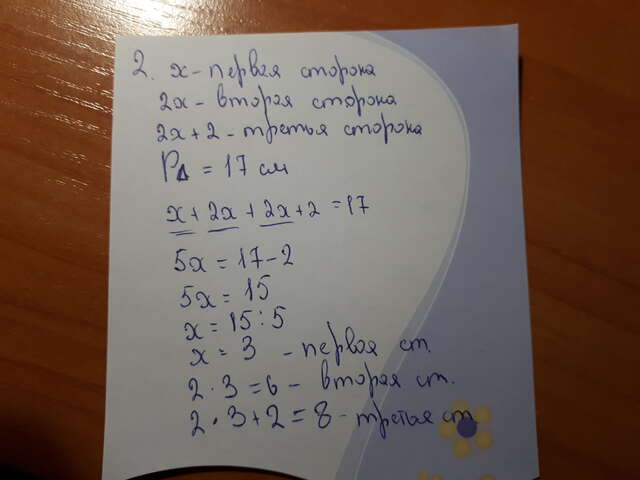 2. х - первая сторона
2х - вторая сторона
2х + 2 - третья сторона
P△ = 17 см
х + 2х + 2х + 2 = 17
5х = 17 - 2
5х = 15
х = 15 : 5
х = 3 - первая ст.
2 · 3 = 6 - вторая ст.
2 · 3 + 2 = 8 - третая ст